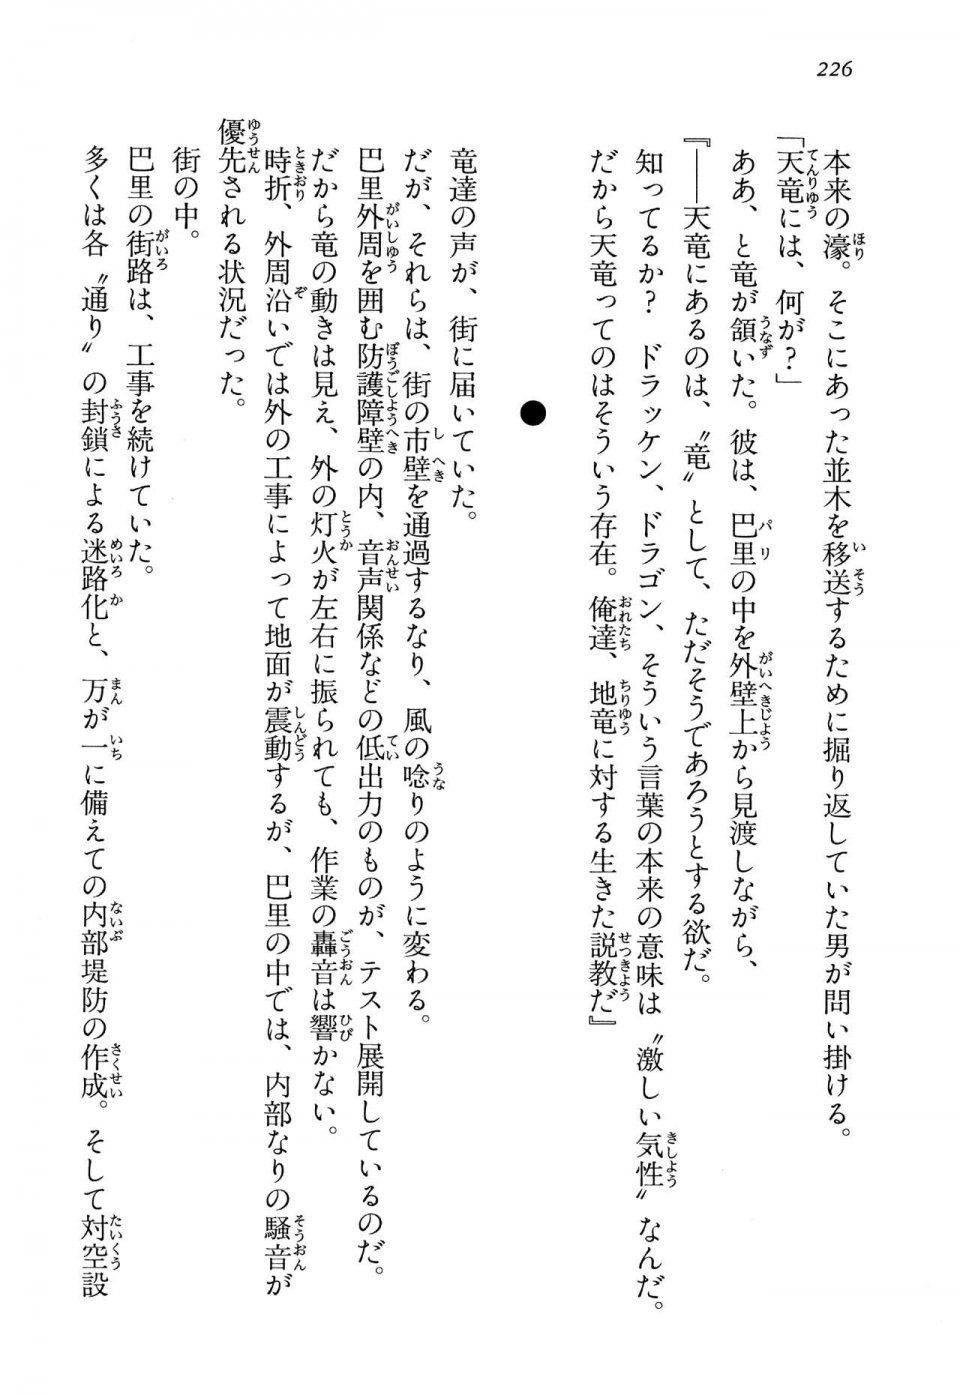 226
本来の濠。そこにあった並木を移送するために掘り返していた男が問い掛ける。
「天竜には、何が？」
ああ、と竜が頷いた。彼は、巴里の中を外壁上から見渡しながら、
『――天竜にあるのは、〝竜〟として、ただそうであろうとする欲だ。
知ってるか？　ドラッケン、ドラゴン、そういう言葉の本来の意味は〝激しい気性〟なんだ。
だから天竜ってのはそういう存在。俺達、地竜に対する生きた説教だ』
●
竜達の声が、街に届いていた。
だが、それらは、街の市壁を通過するなり、風の唸りのように変わる。
巴里外周を囲む防護障壁の内、音声関係などの低出力のものが、テスト展開しているのだ。
だから竜の動きは見え、外の灯火が左右に振られても、作業の轟音は響かない。
時折、外周沿いでは外の工事によって地面が震動するが、巴里の中では、内部なりの騒音が
優先される状況だった。
街の中。
巴里の街路は、工事を続けていた。
多くは各〝通り〟の封鎖による迷路化と、万が一に備えての内部堤防の作成。そして対空設